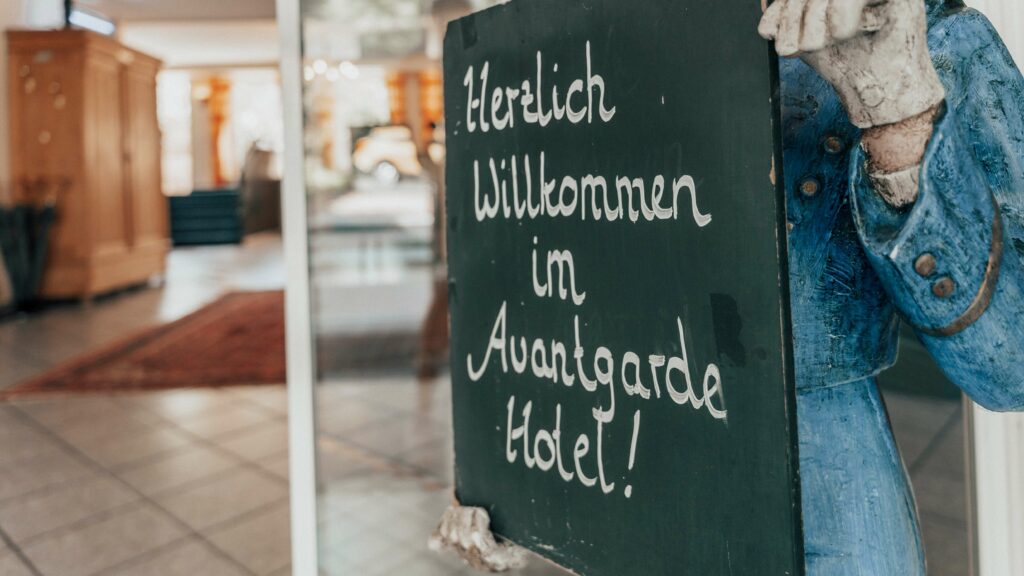 Herzlich
Willkommen
im
Avantgarde
Hotel!